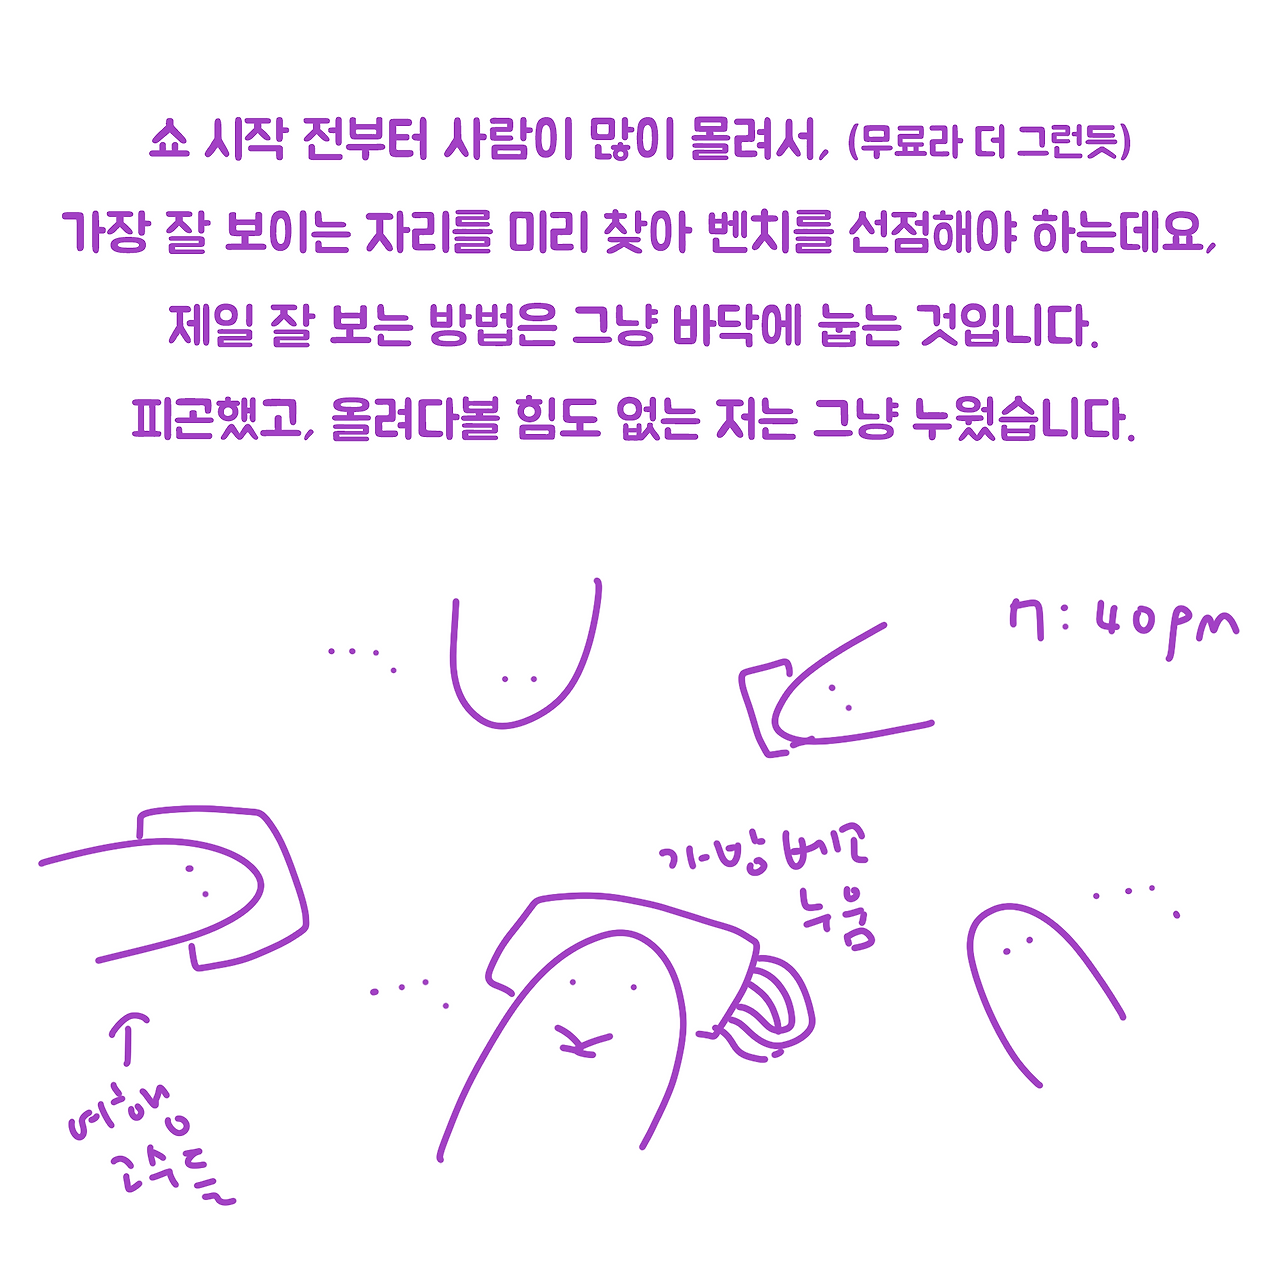 쇼 시작 전부터 사람이 많이 몰려서, (무료라 더 그런듯)
가장 잘 보이는 자리를 미리 찾아 벤치를 선점해야 하는데요,
제일 잘 보는 방법은 그냥 바닥에 눕는 것입니다.
피곤했고, 올려다볼 힘도 없는 저는 그냥 누웠습니다.
7:40pm
가방 베고
누움
여행
고수들